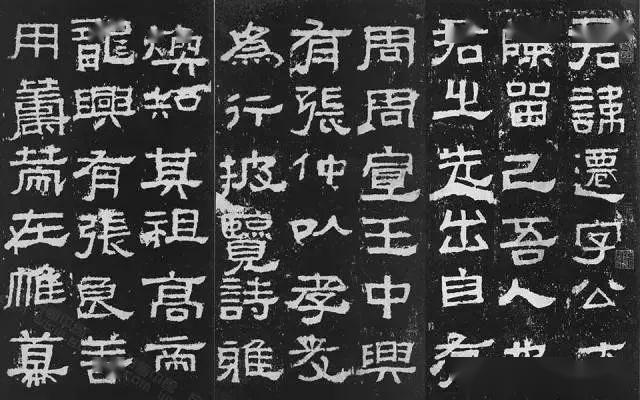 君諱遷字公
陳留己吾人也
君之先出自有
周周宣王中興
有張仲以孝友
為行披覽詩雅
煥知其祖高帝
龍興有張良善
用籌策在帷幕